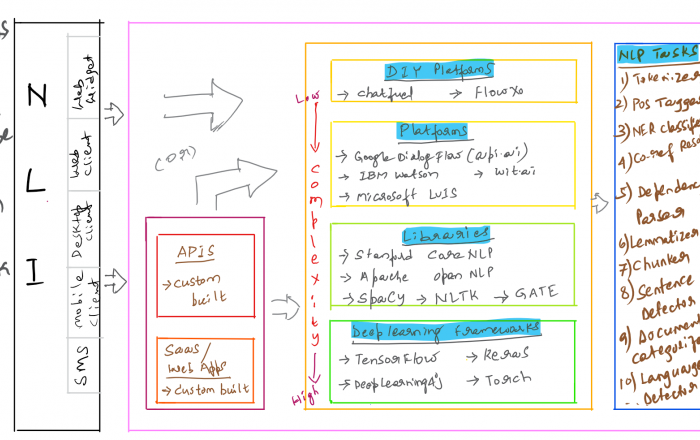 N
L
I
Web Widget
Web client
Desktop client
mobile client
SMS
(OR)
APIS
→ custom built
SaaS/
Web Apps
→ custom built
Low
Complexity
High
DIY Platforms
→ chatfuel → Flow Xo
Platforms
→ Google DialogFlow (api.ai)
→ IBM Watson → wit.ai
→ microsoft LUIS
Libraries
→ Stanford Core NLP
→ Apache open NLP
→ SpaCy → NLTK → GATE
Deeplearning frameworks
→ TensorFlow → Keras
→ Deeplearning4j → Torch
NLP Tasks
1) Tokenizer
2) Pos Tagger
3) NER classifie
4) Co-ref Reso
5) Dependenc
Parser
6) Lemmatizer
7) Chunker
8) Sentence
Detector
9) Document
categoriz
10) Language
Detector